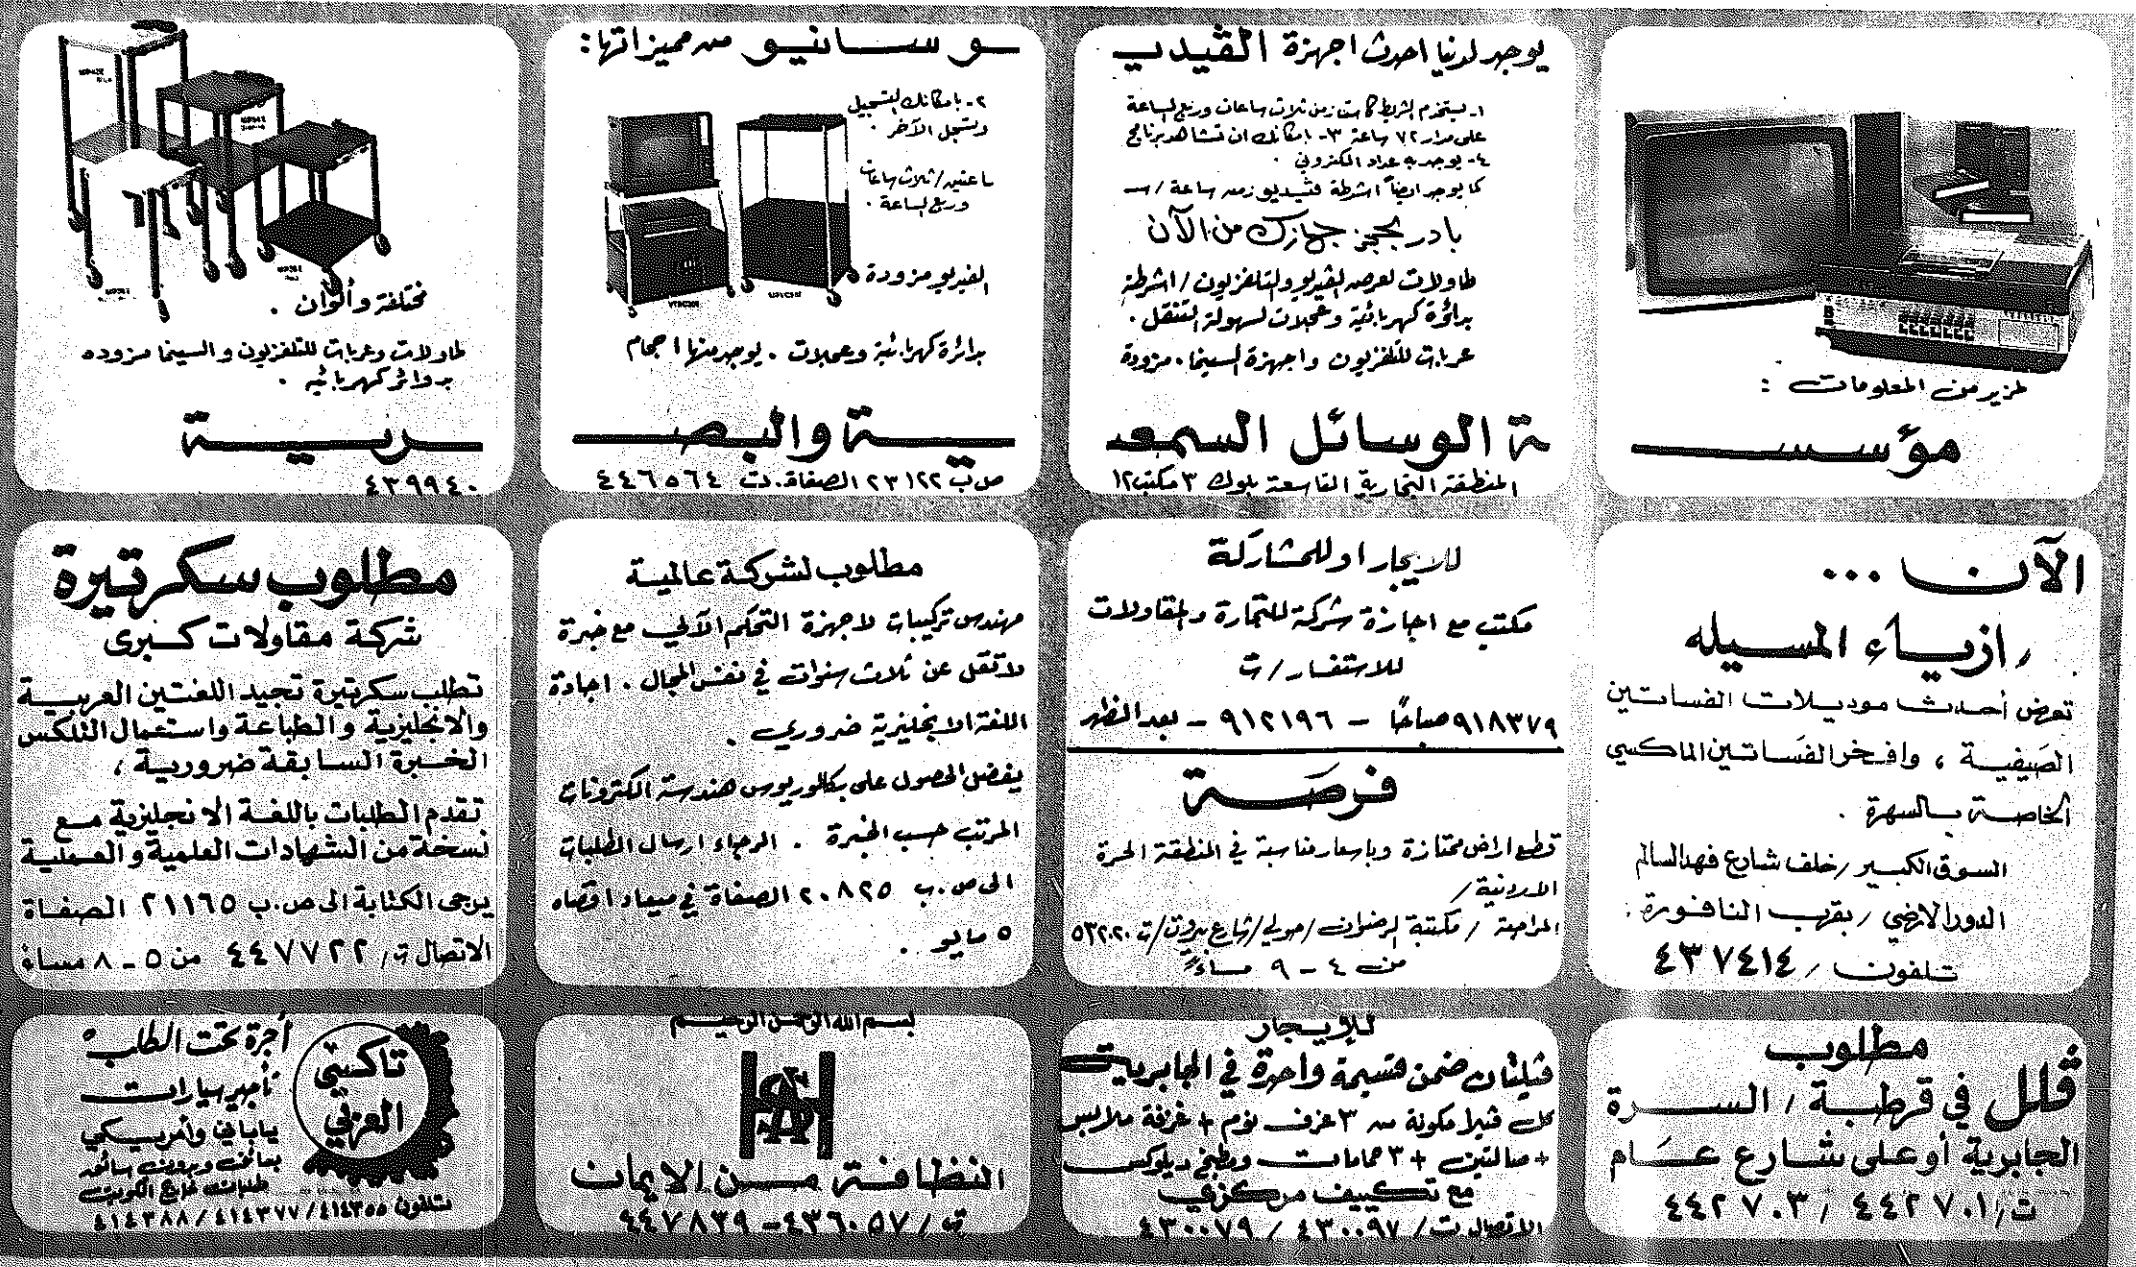 يوجد لدينا احدث اجهزة الڤيديو سانيو من مميزاتها:
١- يستخدم الشريط كاسيت زمن ثلاث ساعات وربع الساعة
على مدار ٧٢ ساعة ٣- بامكانك ان تشاهد برنامج
٤- يوجد به عداد الكتروني .
كما يوجد ايضاً اشرطة ڤيديو زمن ساعة / ساعتين / ثلاث ساعات وربع الساعة .
بادر بحجز جهازك من الآن
طاولات لعرض الڤيديو والتلفزيون / اشرطة الفيديو مزودة
بدائرة كهربائية وعجلات لسهولة التنقل .
عربات للتلفزيون واجهزة السينما . مزودة
٢- بامكانك التسجيل
وتسجل الآخر .
بدائرة كهربائية وعجلات . يوجد منها احجام مختلفة وألوان .
طاولات وعربات للتلفزيون والسينما مزوده
بدوائر كهربائيه .
لمزيد من المعلومات :
مؤسسة الوسائل السمعية والبصرية
المنطقة التجارية التاسعة بلوك ٣ مكتب ١٢ ص ب ٢٣١٢٢ الصفاة. ت ٤٤٦٥٦٤ ٤٣٩٩٤٠
الآن ...
ازياء المسيله
تعرض أحدث موديلات الفساتين
الصيفية ، وافخر الفساتين الماكسي
الخاصة بالسهرة .
السوق الكبير / خلف شارع فهد السالم
الدور الارضي / بقرب النافورة .
تلفون / ٤٣٧٤١٤
للايجار او للمشاركة
مكتب مع اجازة شركة للتجارة والمقاولات
للاستفسار / ت
٩١٨٣٧٩ صباحًا - ٩١٢١٩٦ - بعد الظهر
فرصة
قطع اراض ممتازة وباسعار مناسبة في المنطقة الحرة
الاردنية /
المراجعة / مكتبة الرضوان / حولي / شارع بيروت / ت ٥٣٢٠٢٠
من ٤ - ٩ مساءً
مطلوب لشركة عالمية
مهندس تركيبات لاجهزة التحكم الآلي مع خبرة
لا تقل عن ثلاث سنوات في نفس المجال . اجادة
اللغة الانجليزية ضروري .
يفضل الحصول على بكالوريوس هندسة الكترونات
المرتب حسب الخبرة . الرجاء ارسال الطلبات
الى ص.ب ٢٠٨٢٥ الصفاة في ميعاد اقصاه
٥ مايو .
مطلوب سكرتيرة
شركة مقاولات كبرى
تطلب سكرتيرة تجيد اللغتين العربية
والانجليزية والطباعة واستعمال التلكس
الخبرة السابقة ضرورية ،
تقدم الطلبات باللغة الانجليزية مع
نسخة من الشهادات العلمية والعملية
يرجى الكتابة الى ص.ب ٢١١٦٥ الصفاة
الاتصال ت/ ٤٤٧٧٢٢ من ٥ - ٨ مساءً
مطلوب
ڤلل في قرطبة / السرة
الجابرية أو على شارع عام
ت/ ٤٤٢٧٠١ / ٤٤٢٧٠٣
للإيجار
ڤيلتان ضمن قسيمة واحدة في الجابرية
كل ڤيلا مكونة من ٣ غرف نوم + غرفة ملابس
+ صالتين + ٣ حمامات ومطبخ ديلوكس
مع تكييف مركزي
الاتصال ت / ٤٣٠٠٩٧ / ٤٣٠٠٧٩
بسم الله الرحمن الرحيم
النظافة من الايمان
ت / ٤٣٦٠٥٧ - ٤٤٧٨٣٩
تاكسي
العزلي
أجرة تحت الطلب
تأجير سيارات
ياباني وأمريكي
بسائق وبدون سائق
طلبات خارج الكويت
تلفون ٤١٤٣٥٥ / ٤١٤٣٧٧ / ٤١٤٣٨٨